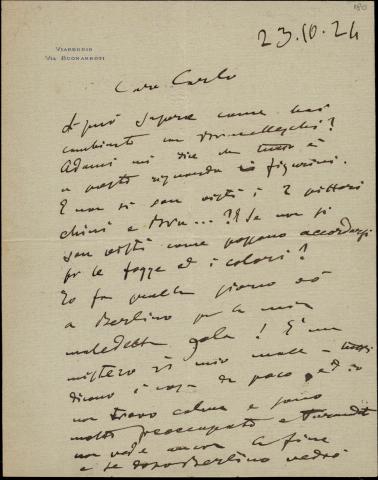 180
VIAREGGIO
VIA BUONARROTI
23.10.24
Caro Carlo
Si può sapere come hai
combinato con Brunelleschi?
Adami mi dice che tutto è
a posto riguardo ai figurini.
E non si son visti i 2 pittori
chini e Bru...?! Se non si
son visti come possono accordarsi
per le fogge ed i colori?
Io fra qualche giorno
a Berlino per la mia
maledetta gola! È un
mistero il mio male - tutti
dicono è cosa da poco ed io
non trovo calma e sono
molto preoccupato e Turandot
non vede ancora la fine
e se dopo Berlino vedrò